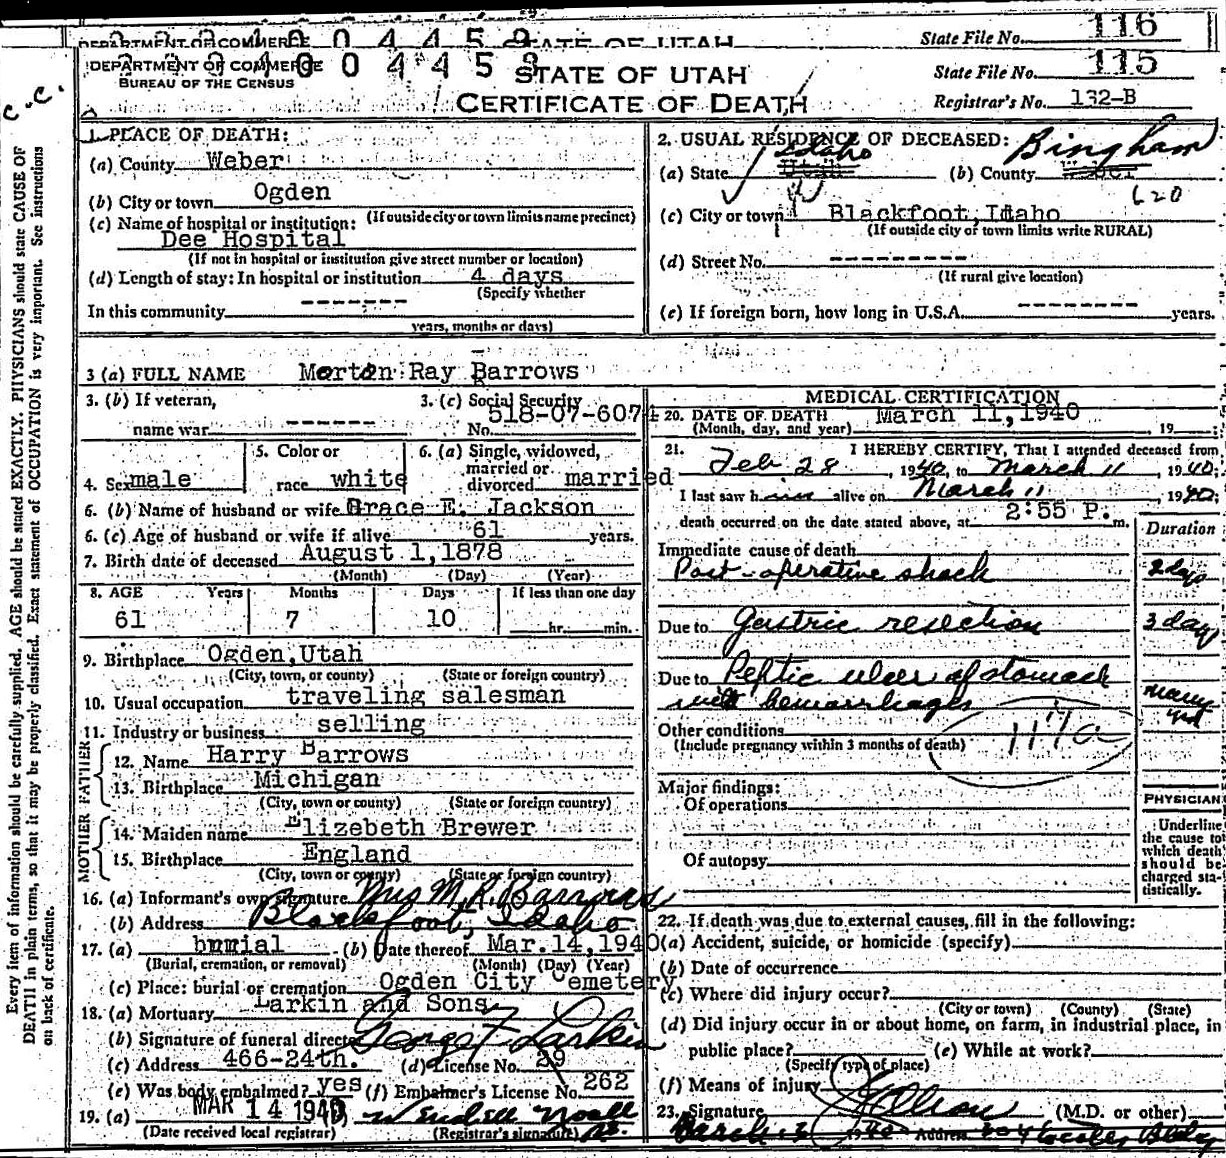 DEPARTMENT OF COMMERCE STATE OF UTAH State File No. 116
DEPARTMENT OF COMMERCE 004459 STATE OF UTAH State File No. 115
BUREAU OF THE CENSUS
CERTIFICATE OF DEATH Registrar's No. 132-B
C.C.
Every item of information should be carefully supplied. AGE should be stated EXACTLY. PHYSICIANS should state CAUSE OF
DEATH in plain terms, so that it may be properly classified. Exact statement of OCCUPATION is very important. See instructions
on back of certificate.
1. PLACE OF DEATH:
(a) County Weber
(b) City or town Ogden
(If outside city or town limits name precinct)
(c) Name of hospital or institution:
Dee Hospital
(If not in hospital or institution give street number or location)
(d) Length of stay: In hospital or institution 4 days
(Specify whether
In this community --------
years, months or days)
2. USUAL RESIDENCE OF DECEASED:
(a) State Utah Idaho (b) County Weber Bingham
620
(c) City or town Blackfoot, Idaho
(If outside city or town limits write RURAL)
(d) Street No. ---------
(If rural give location)
(e) If foreign born, how long in U.S.A. -------- years.
3 (a) FULL NAME Morton Ray Barrows
3. (b) If veteran,
name war ------
3. (c) Social Security
No. 518-07-6074
4. Sex male
5. Color or
race white
6. (a) Single, widowed,
married or
divorced married
6. (b) Name of husband or wife Grace E. Jackson
6. (c) Age of husband or wife if alive 61 years.
7. Birth date of deceased August 1, 1878
(Month) (Day) (Year)
8. AGE Years Months Days If less than one day
61 7 10 hr. min.
9. Birthplace Ogden, Utah
(City, town, or county) (State or foreign country)
10. Usual occupation traveling salesman
11. Industry or business selling
FATHER
12. Name Harry Barrows
13. Birthplace Michigan
(City, town or county) (State or foreign country)
MOTHER
14. Maiden name Elizebeth Brewer
15. Birthplace England
(City, town or county) (State or foreign country)
16. (a) Informant's own signature Mrs M. R. Barrows
(b) Address Blackfoot, Idaho
17. (a) burial (b) Date thereof Mar. 14, 1940
(Burial, cremation, or removal) (Month) (Day) (Year)
(c) Place: burial or cremation Ogden City Cemetery
18. (a) Mortuary Larkin and Sons
(b) Signature of funeral director George F Larkin
(c) Address 466-24th. (d) License No. 29
(e) Was body embalmed? yes (f) Embalmer's License No. 262
19. (a) MAR 14 1940 (b) Wendell Noall
(Date received local registrar) (Registrar's signature)
MEDICAL CERTIFICATION
20. DATE OF DEATH March 11, 1940
(Month, day, and year) , 19
21. I HEREBY CERTIFY, That I attended deceased from
Feb 28, 1940, to March 11, 1940;
I last saw him alive on March 11, 1940;
death occurred on the date stated above, at 2:55 P. m.
Duration
Immediate cause of death
Post-operative shock 2 days
Due to Gastric resection 3 days
Due to Peptic ulcer of stomach
with hemorrhages many
Other conditions 117a
(Include pregnancy within 3 months of death)
Major findings:
Of operations
Of autopsy
PHYSICIAN
Underline
the cause to
which death
should be
charged sta-
tistically.
22. If death was due to external causes, fill in the following:
(a) Accident, suicide, or homicide (specify)
(b) Date of occurrence
(c) Where did injury occur?
(City or town) (County) (State)
(d) Did injury occur in or about home, on farm, in industrial place, in
public place? (e) While at work?
(Specify type of place)
(f) Means of injury
23. Signature (M.D. or other)
March 13 1940 Address Bldg